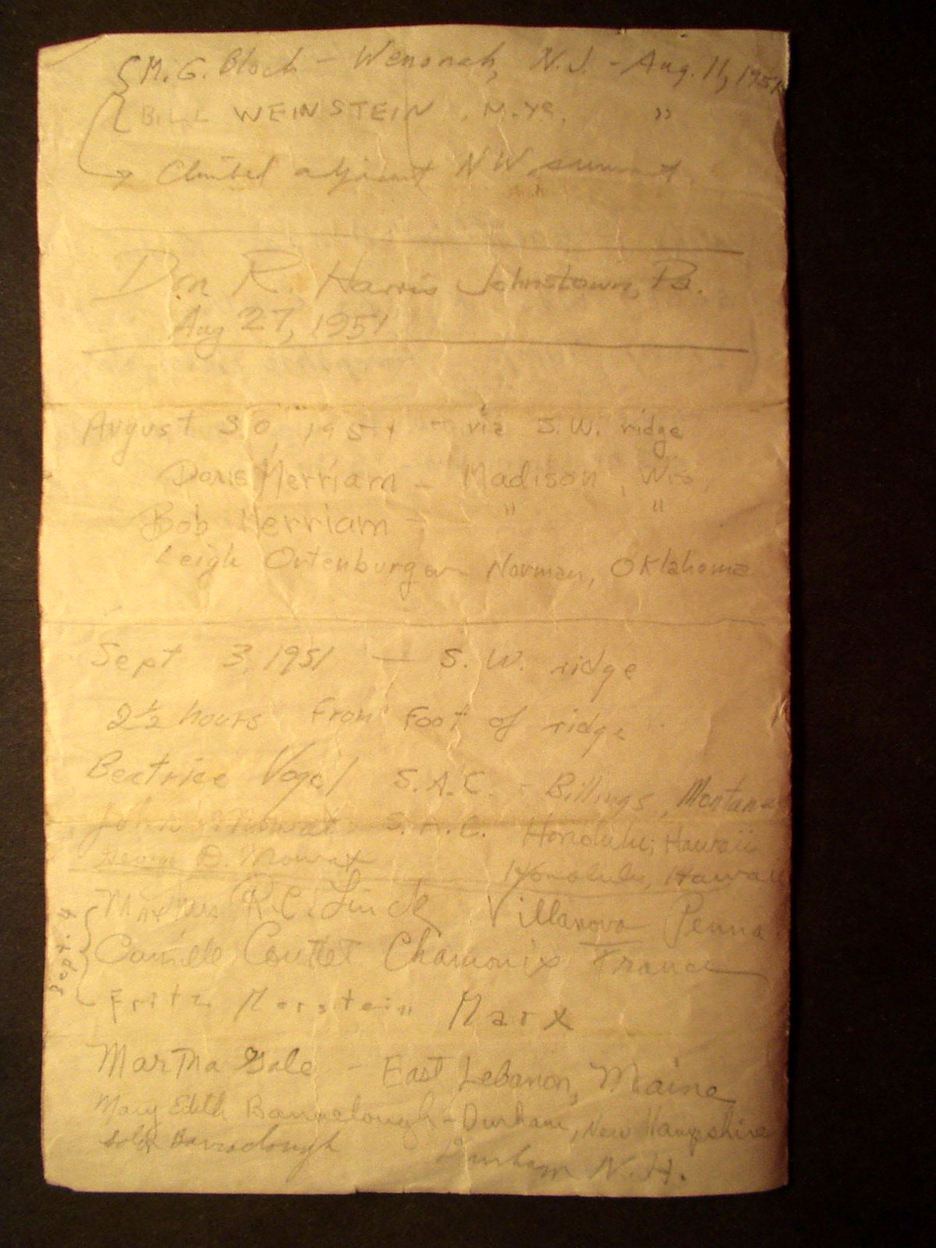 M. G. Bloch - Wenonah, N.J. - Aug. 11, 1951
WEINSTEIN, N.YC. "
→ Climbed adjacent NW summit.
Don R. Harris Johnstown, Pa.
Aug 27, 1951
August 30, 1951 - via S.W. ridge
Doris Merriam - Madison, Wis.
Bob Merriam - " "
Leigh Ortenburger Norman, Oklahoma
Sept 3, 1951 - S.W. ridge
2½ hours from foot of ridge
Beatrice Vogel S.A.C. - Billings, Montana
John S.A.C. Honolulu, Hawaii
George D. Mowat Honolulu, Hawaii
R.C. Linck Villanova Penna.
Sept. 4
Camille Couttet Chamonix France
Fritz Morstein Marx
Martha Gale - East Lebanon, Maine
Mary Edith Barraclough - Durham, New Hampshire
Barraclough Durham N.H.